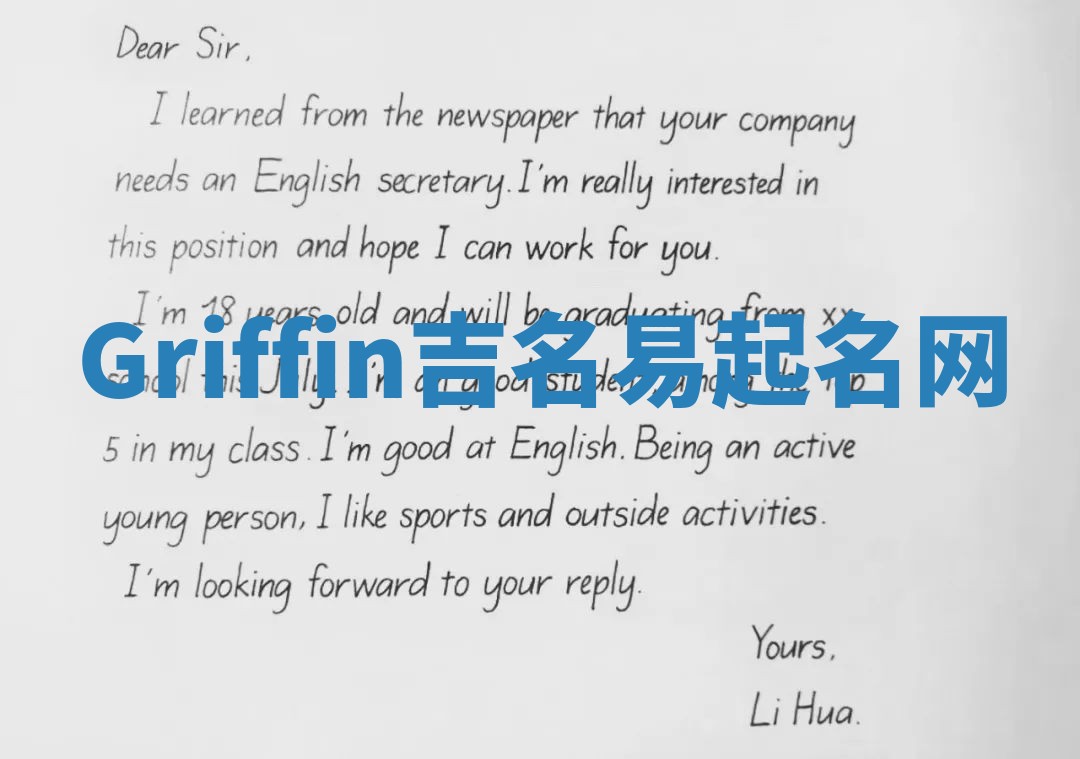 Dear Sir,
I learned from the newspaper that your company
needs an English secretary. I'm really interested in
this position and hope I can work for you.
I'm 18 years old and will be graduating from xx
Griffin吉名易起名网
school this July. I'm a good student, among the top
5 in my class. I'm good at English. Being an active
young person, I like sports and outside activities.
I'm looking forward to your reply.
Yours,
Li Hua.